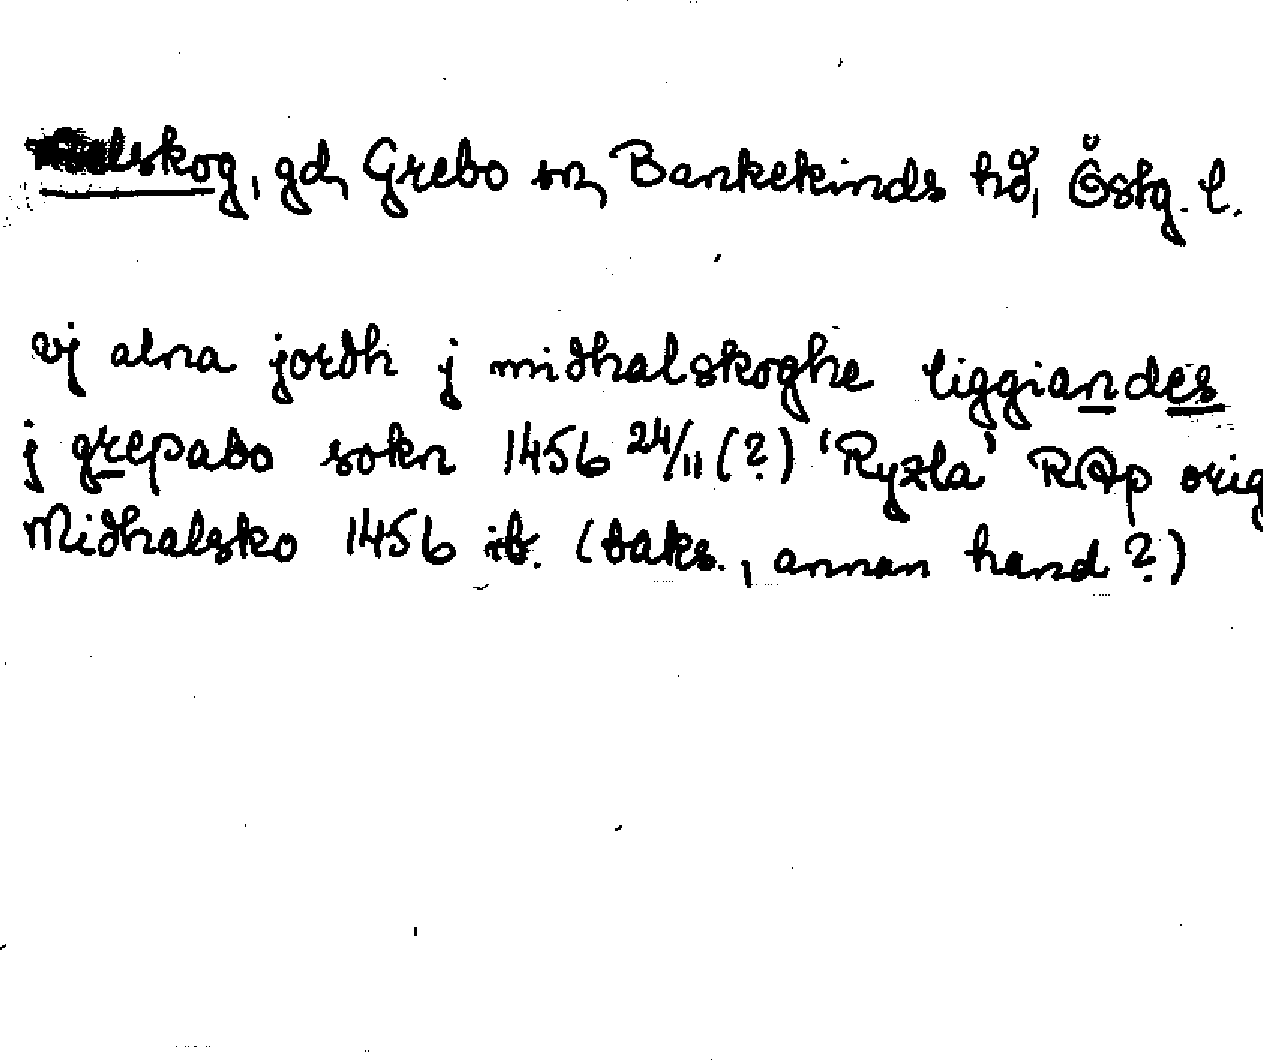 gd, Grebo sn, Bankekinds hd, Östg. l.
vj alna jordh j midhalskoghe liggiandes
j grepabo sokn 1456 24/11 (?) 'Ryzla' RAp orig
Midhalsko 1456 ib. (baks., annan hand?)